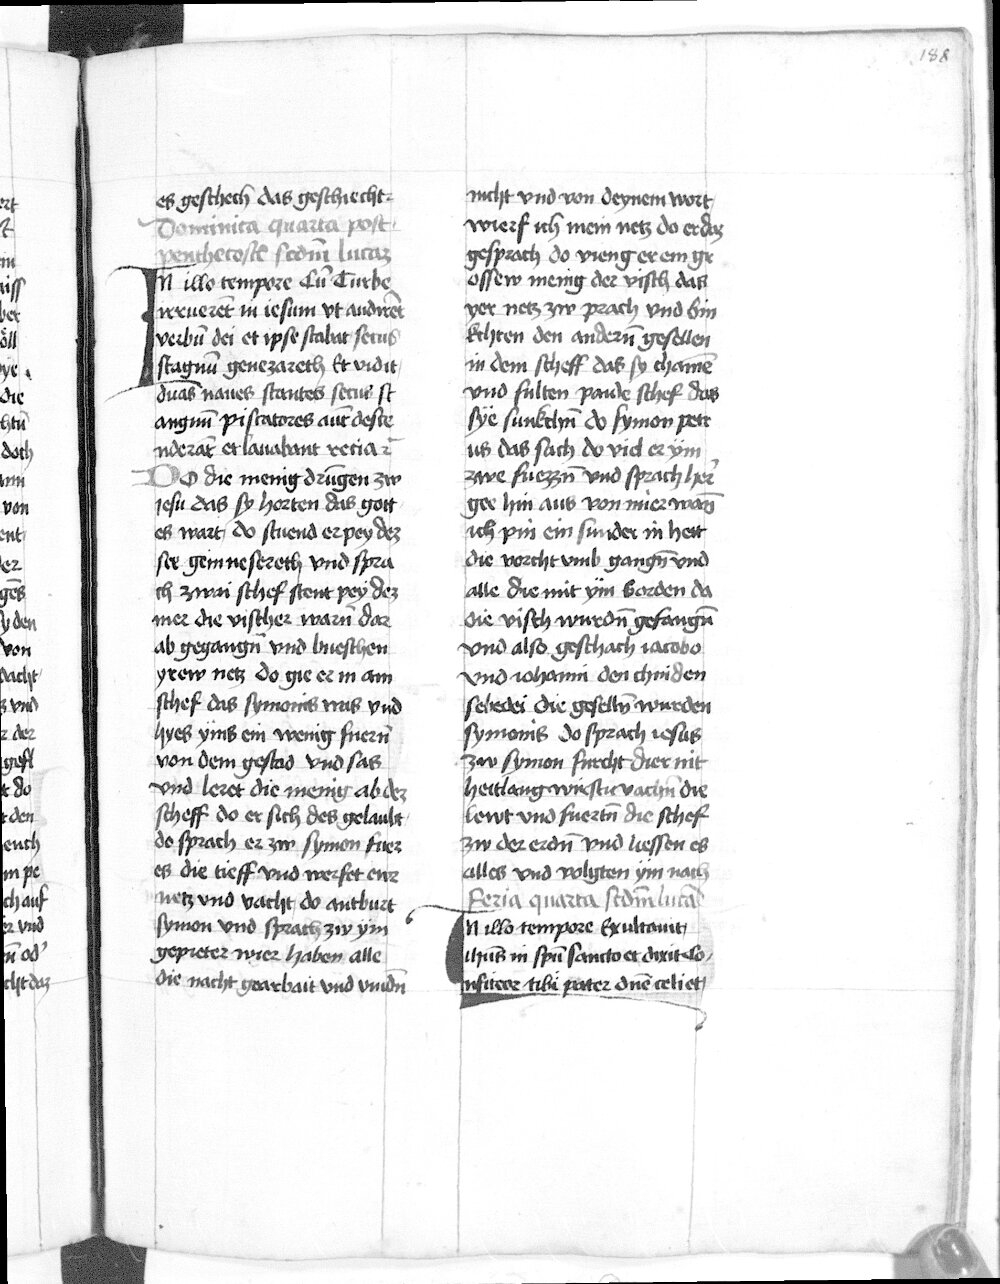 188
es geschech das geschiecht
Dominica quarta post
penthecosten scdm lucaz
In illo tempore Cu Turbe
irrueret in iesum vt audiret
verbu dei et ipse stabat secus
stagnu genezareth Et vidit
duas naues stantes secus st
angnu piscatores aut desce
nderat et lauabant recia
Do die menig drungen zw
iesu das sy horten das gott
es wart do stuend er pey dez
see gennesereth vnd spra
ch zwai schef stent pey dez
mer die vischer warn dar
ab gegangn vnd bueschen
yrew netz do gie er in ain
schef das symonis was vnd
hyes yms ein wenig fuern
von dem gestad vnd sas
vnd leret die menig ab dez
scheff do er sich des gelaubt
do sprach er zw symon fuer
es die tieff vnd werfet ewr
netz vnd vacht do antburt
symon vnd sprach zw ym
gepieter wier haben alle
die nacht gearbait vnd viudn
nicht vnd von deynem wort
wierf ich mein netz do er daz
gesprach do vieng er em gr
ossew menig der visch das
yer netz zw prach vnd bin
kchten den andern gesellen
in dem scheff das sy chamen
vnd fulten paide schef das
sye sunkchn do symon petr
us das sach do viel er ym
zwe fuezzn vnd sprach her
gee hin aus von mier wan
ich pin ein sunder in hett
die vorcht vmb gangn vnd
alle die mit ym borden da
die visch wurdn gefangn
vnd also geschach iacobo
vnd iohanni den chinden
sebedei die geselln wurden
symonis do sprach iesus
zw symon furcht dier nit
heitlang wirstu vachn die
lewt vnd fuertn die schef
zw der erdn vnd liessen es
alles vnd volgten ym nach
Feria quarta scdm lucam
In illo tempore Exultauit
ihus in spu sancto et dixit Co
nfiteor tibi pater dne celi et